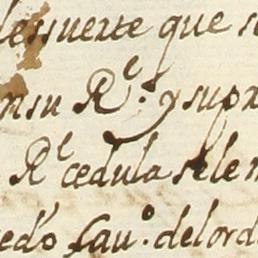 dessuerte que s
nsu R.^e y supr
R^l cedula sele n
edó fau.^o delord